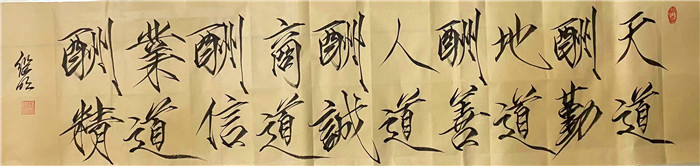 天道
酬勤
地道
酬善
人道
酬誠
商道
酬信
業道
酬精